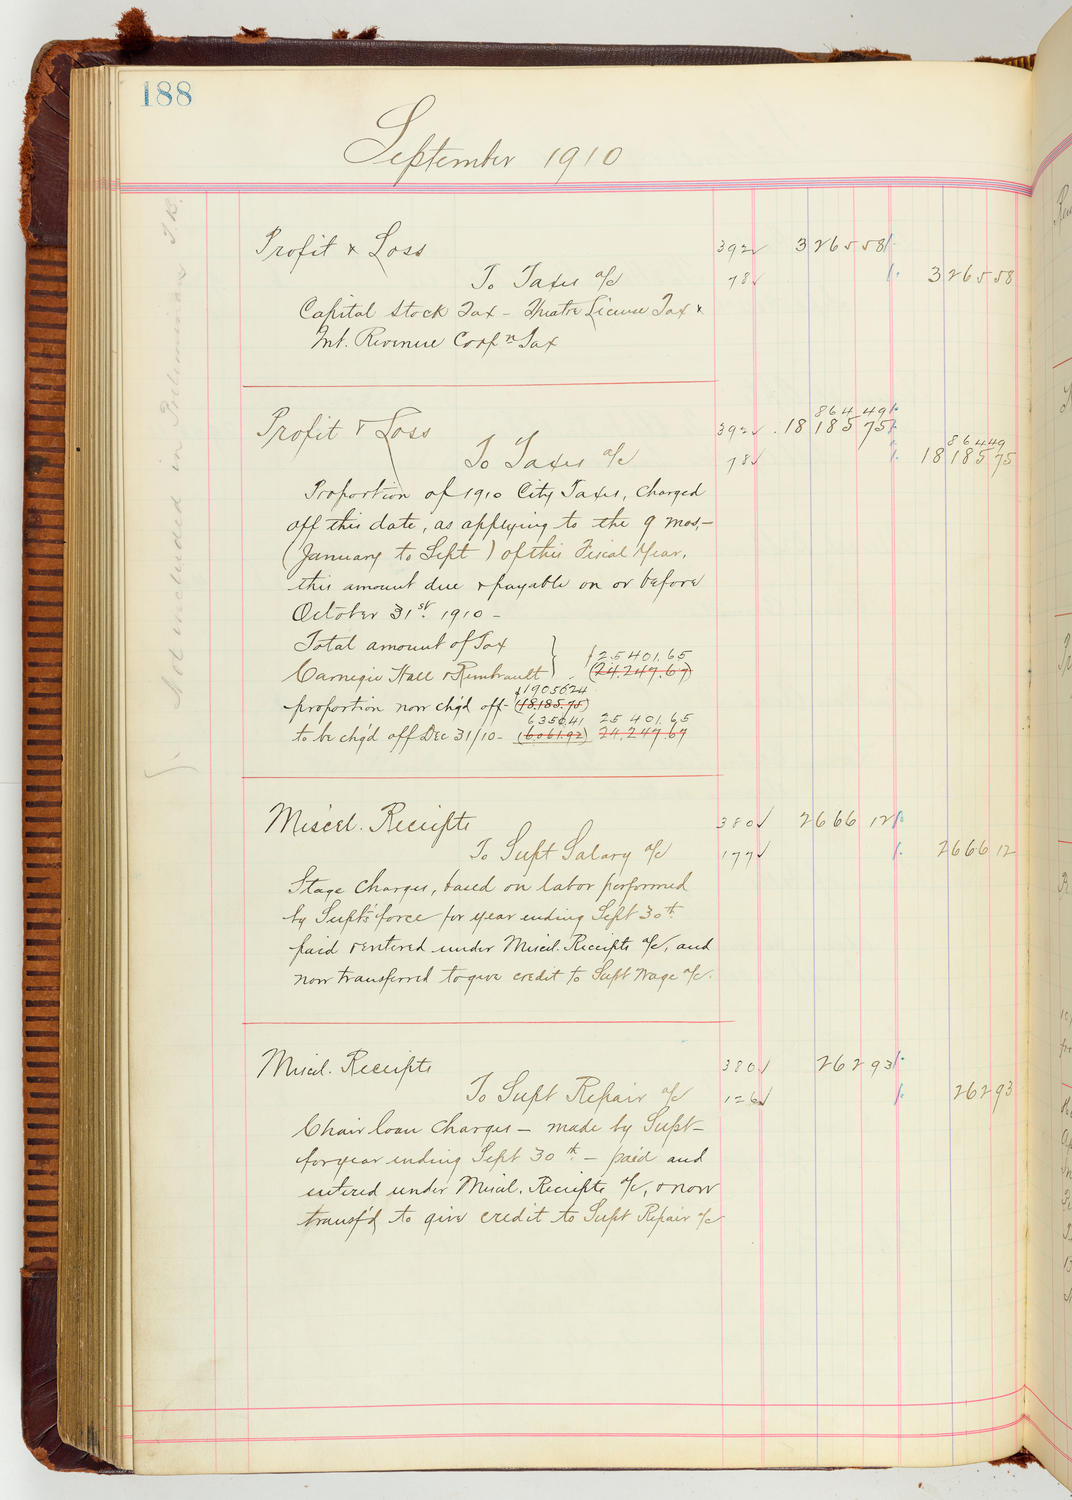 188
September 1910
Profit & Loss 392 ✓ 3265 58
To Taxes a/c 78 ✓ 3265 58
Capital Stock Tax - Theatre License Tax &
Int. Revenue Corp'n Tax
864 49
Profit & Loss 392 ✓ 18 185 75
864 49
To Taxes a/c 78 ✓ 18 185 75
Proportion of 1910 City Taxes, charged
off this date, as applying to the 9 mos. -
(January to Sept) of this Fiscal Year,
this amount due & payable on or before
October 31st. 1910 -
Total amount of Tax } $25401.65
Carnegie Hall & Rembrandt } (24.247.67)
$19050.24
proportion now chg'd off - (18.185.75)
6350.41 25 401.65
to be chg'd off Dec 31/10 - (6.061.92) 24.247.67
Miscel. Receipts 380 ✓ 2666 12
To Supt Salary a/c 177 ✓ 2666 12
Stage Charges, based on labor performed
by Supt's force for year ending Sept 30th
paid & entered under Miscl. Receipts a/c, and
now transferred to give credit to Supt Wage a/c.
Miscl. Receipts 380 ✓ 262 93
To Supt Repair a/c 126 ✓ 262 93
Chair loan Charges - made by Supt -
for year ending Sept 30th. - paid and
entered under Miscl. Receipts a/c, & now
transf'd to give credit to Supt Repair a/c
Not included in Preliminary T.B.